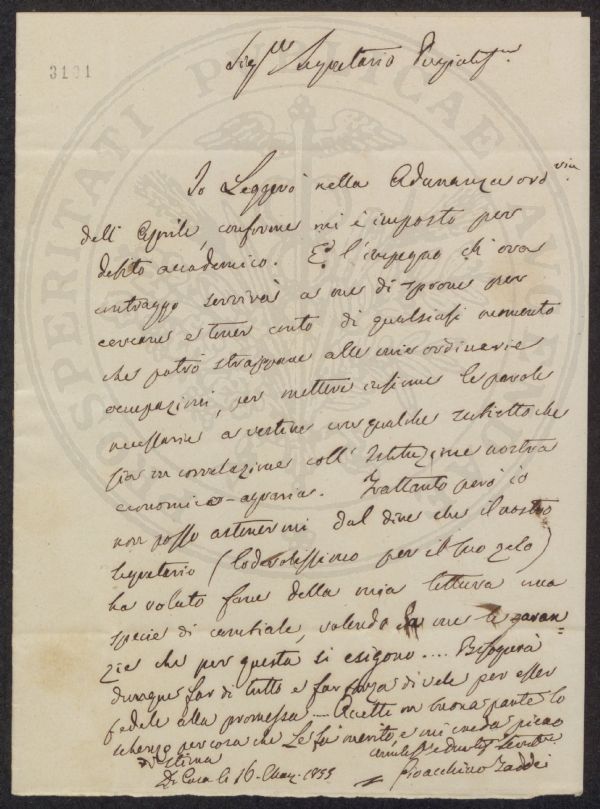 3101
PROSPERITATI PUBLICAE AUGENDAE
Sig.re Segretario
Io Leggerò nella Adunanza ord.ria
dell' Aprile, conforme mi è imposto per
debito accademico. E l'impegno ch'ora
contraggo servirà a me di sprone per
cercare e tener conto di qualsiasi momento
che potrò strappare alle mie ordinarie
occupazioni, per mettere insieme le parole
necessarie a vestire un qualche subietto che
sia in correlazione coll' Istituzione nostra
economico-agraria. Frattanto però io
non posso astenermi dal dire che il nostro
Segretario (lodevolissimo per il suo zelo)
ha voluto fare della mia lettura una
specie di cambiale, volendo da me le garan=
zie che per questa si esigono.... Bisognerà
dunque far di tutto e far forza di vele per esser
fedele alla promessa — Accetti in buona parte lo
scherzo per cosa che Le fa merito e mi creda pieno
di stima
Di Casa le 16. 1855
Gioacchino Taddei